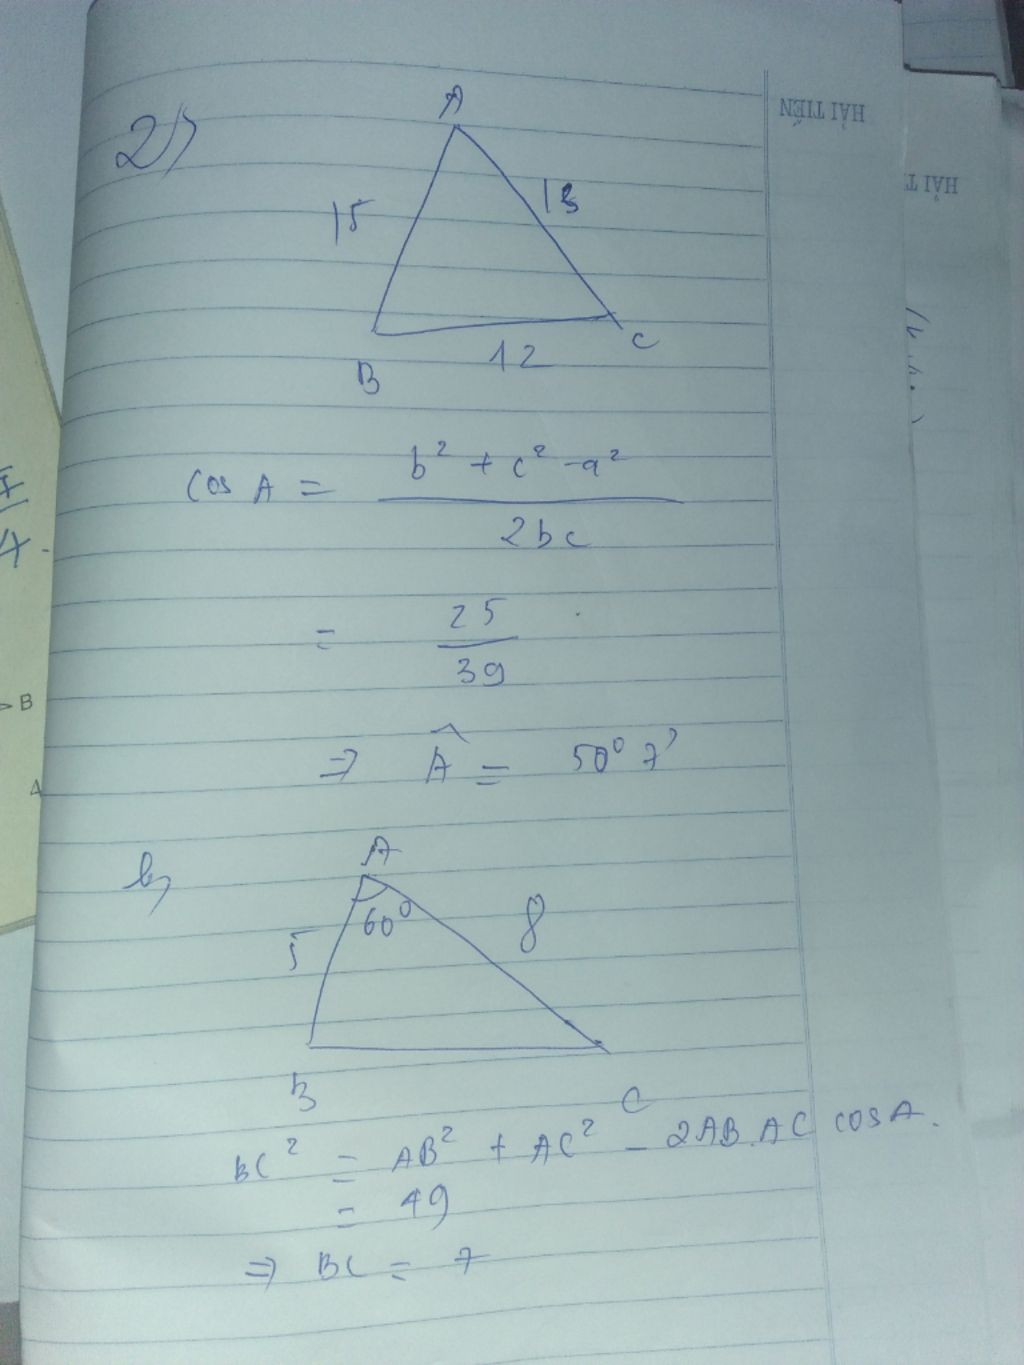 2)
A
15
13
B
12
C
cos A = b² + c² - a² / 2bc
= 25 / 39
⇒ Â = 50° 7'
b,
A
60°
5
8
B
C
BC² = AB² + AC² - 2AB.AC cosA.
= 49
⇒ BC = 7
HẢI TIẾN
HẢI T
B
4.